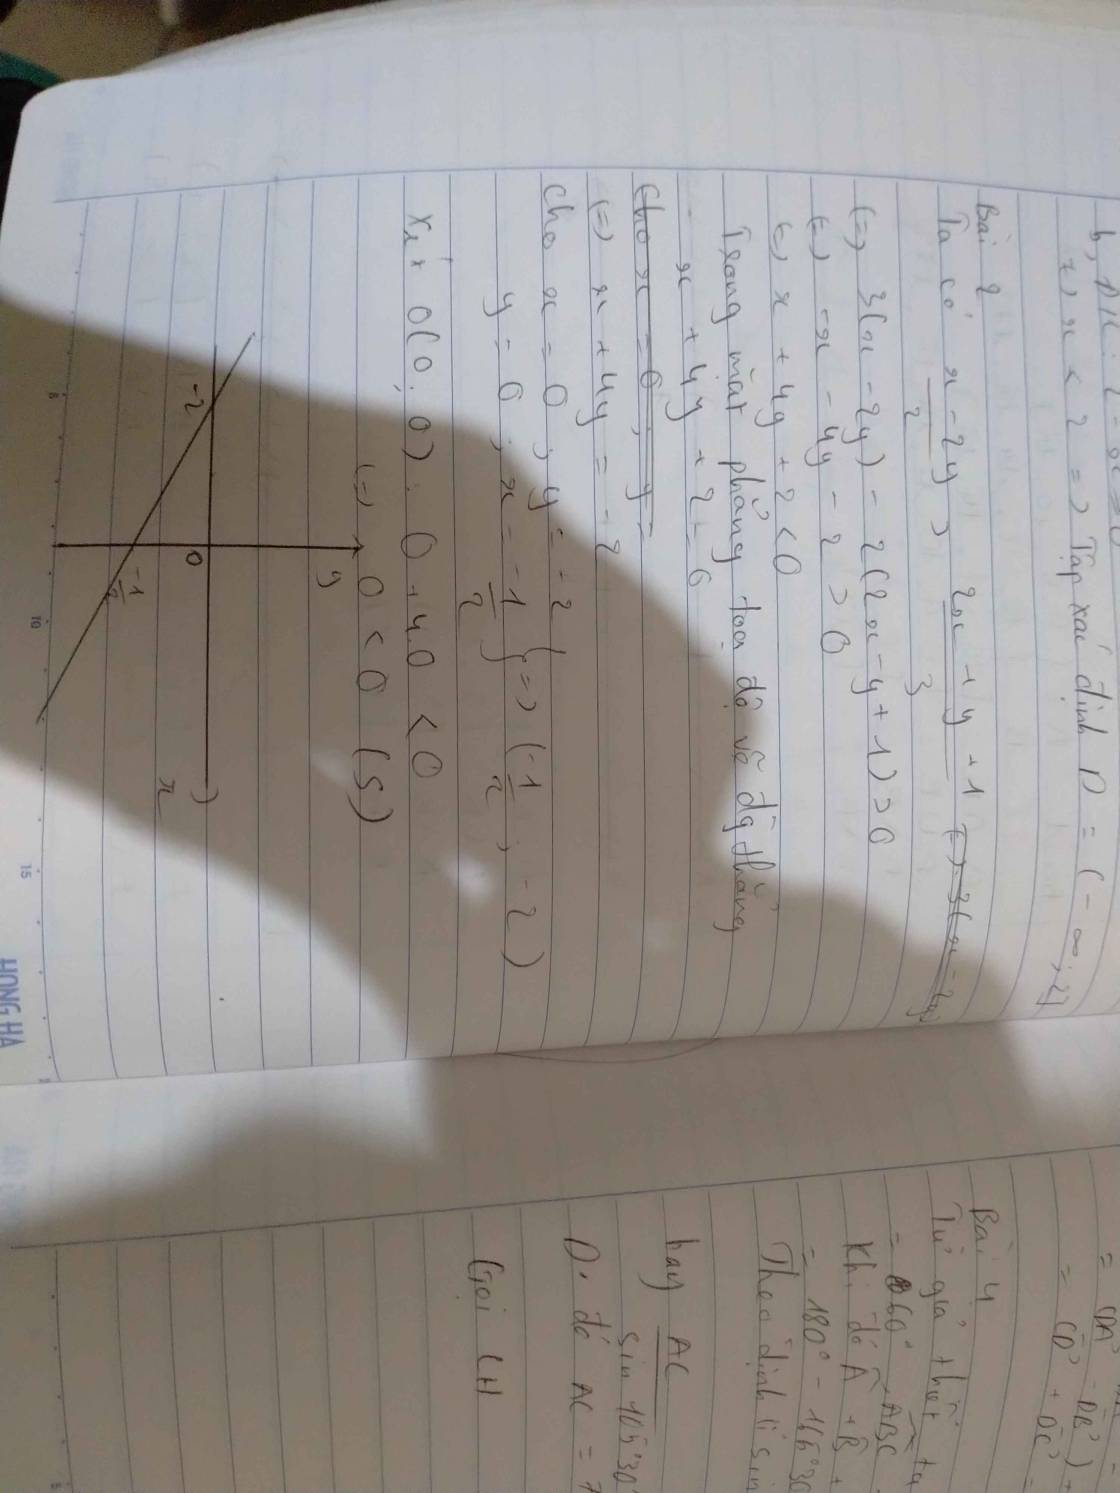 b, ĐK: 2 - x
=> x < 2 => Tập xác định D = (-∞; 2]
Bài 2
Ta có x - 2y / 2 > 2x + y + 1 / 3 (=) 3(x - 2y)
(=) 3(x - 2y) - 2(2x - y + 1) > 0
(=) -x - 4y - 2 > 0
(=) x + 4y + 2 < 0
Trong mặt phẳng toạ độ vẽ đg thẳng
x + 4y + 2 = 0
Cho x = 0; y =
(=) x + 4y = -2
Cho x = 0, y = -2
y = 0; x = -1/2 } => (-1/2; -2)
Xét O(0; 0): 0 + 4.0 < 0
(=) 0 < 0 (S)
y
-2
O
-1/2
x
5
10
15
HONG HA
Bài 4
Từ giả thiết ta
= 60° ABC
Khi đó A + B +
= 180° - 
Theo định lí sin
hay AC
sin 105°30'
Do đó AC = 7
Gọi CH